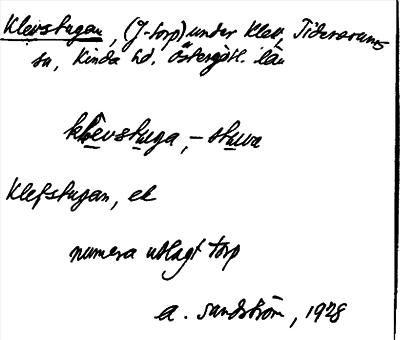 Klevstugan, (J-torp) under Klev, Tidersrums
sn, Kinda hd. Östergötl. län
klevstuga, -stuva
Klefstugan, ek
numera utlagt torp
A. Sandström, 1928